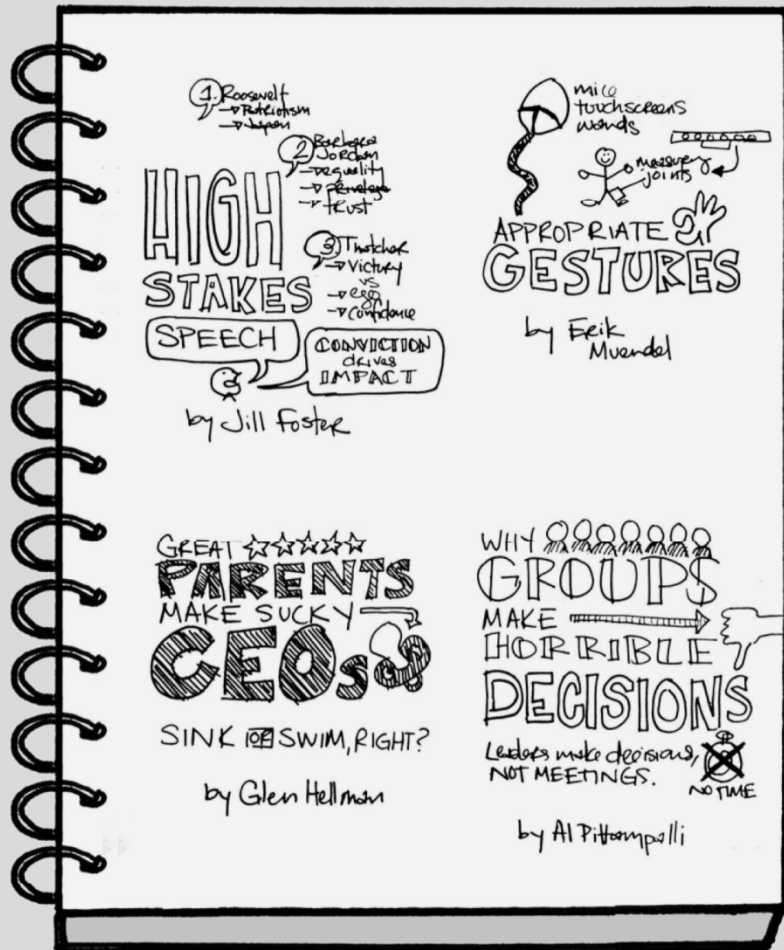 1. Roosevelt
→ Patriotism
→ Japan
2 Barbara
Jordan
→ equality
→ privilege
→ trust
HIGH
STAKES
SPEECH
3 Thatcher
→ Victory
vs
→ ego
→ confidence
CONVICTION
drives
IMPACT
by Jill Foster
mice
touchscreens
wands
joints
APPROPRIATE
GESTURES
by Erik
Muendel
GREAT
PARENTS
MAKE SUCKY
CEOs
SINK OR SWIM, RIGHT?
by Glen Hellman
WHY
GROUPS
MAKE
HORRIBLE
DECISIONS
Leaders make decisions,
NOT MEETINGS.
NO TIME
by Al Pittampalli